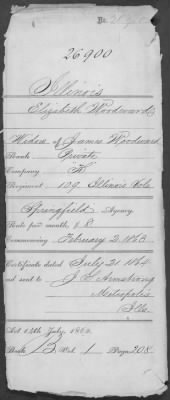 26900
Illinois
Elizabeth Woodward
Widow of James Woodward
Rank Private
Company K
Regiment 109 Illinois Vols
Springfield Agency
Rate per month, $8
Commencing February 2, 1863
Certificate dated July 21 1864
and sent to J G Armstrong
Metropolis
Ills.
Act 14th July, 1862.
Book B Vol. 1 Page 308